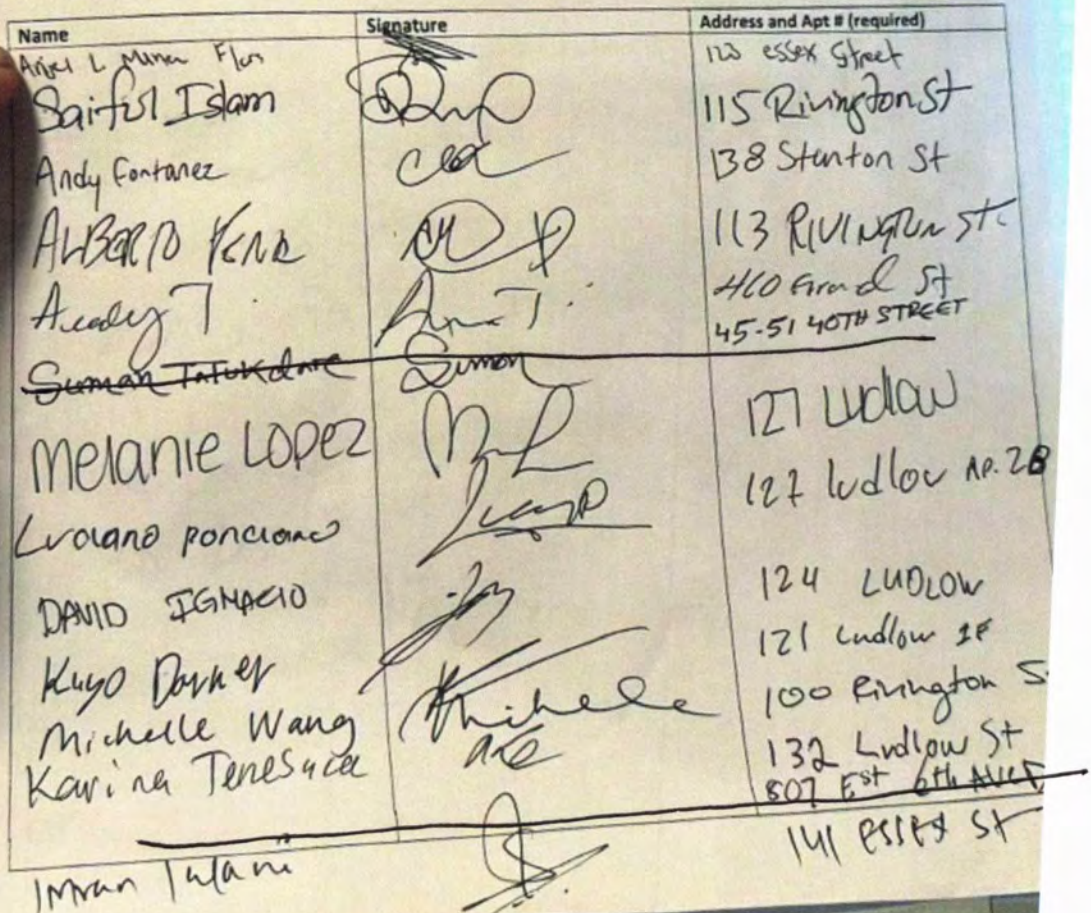 Name Signature Address and Apt # (required)
Angel L 120 essex Street
Saiful Islam 115 Rivington St
Andy Fontanez 138 Stanton St
ALBERTO PENA 113 RIVINGTON St.
T 460 Grand St
Suman Talukdare Suman 45-51 40TH STREET
Melanie Lopez 127 Ludlow
Luciano ponciano 127 ludlow AP. 2B
DAVID IGNACIO 124 LUDLOW
Kuyo 121 Ludlow 1F
Michelle Wang Michele 100 Rivington S
Karina 132 Ludlow St
807 Est 6th
Imran 141 ESSEX St